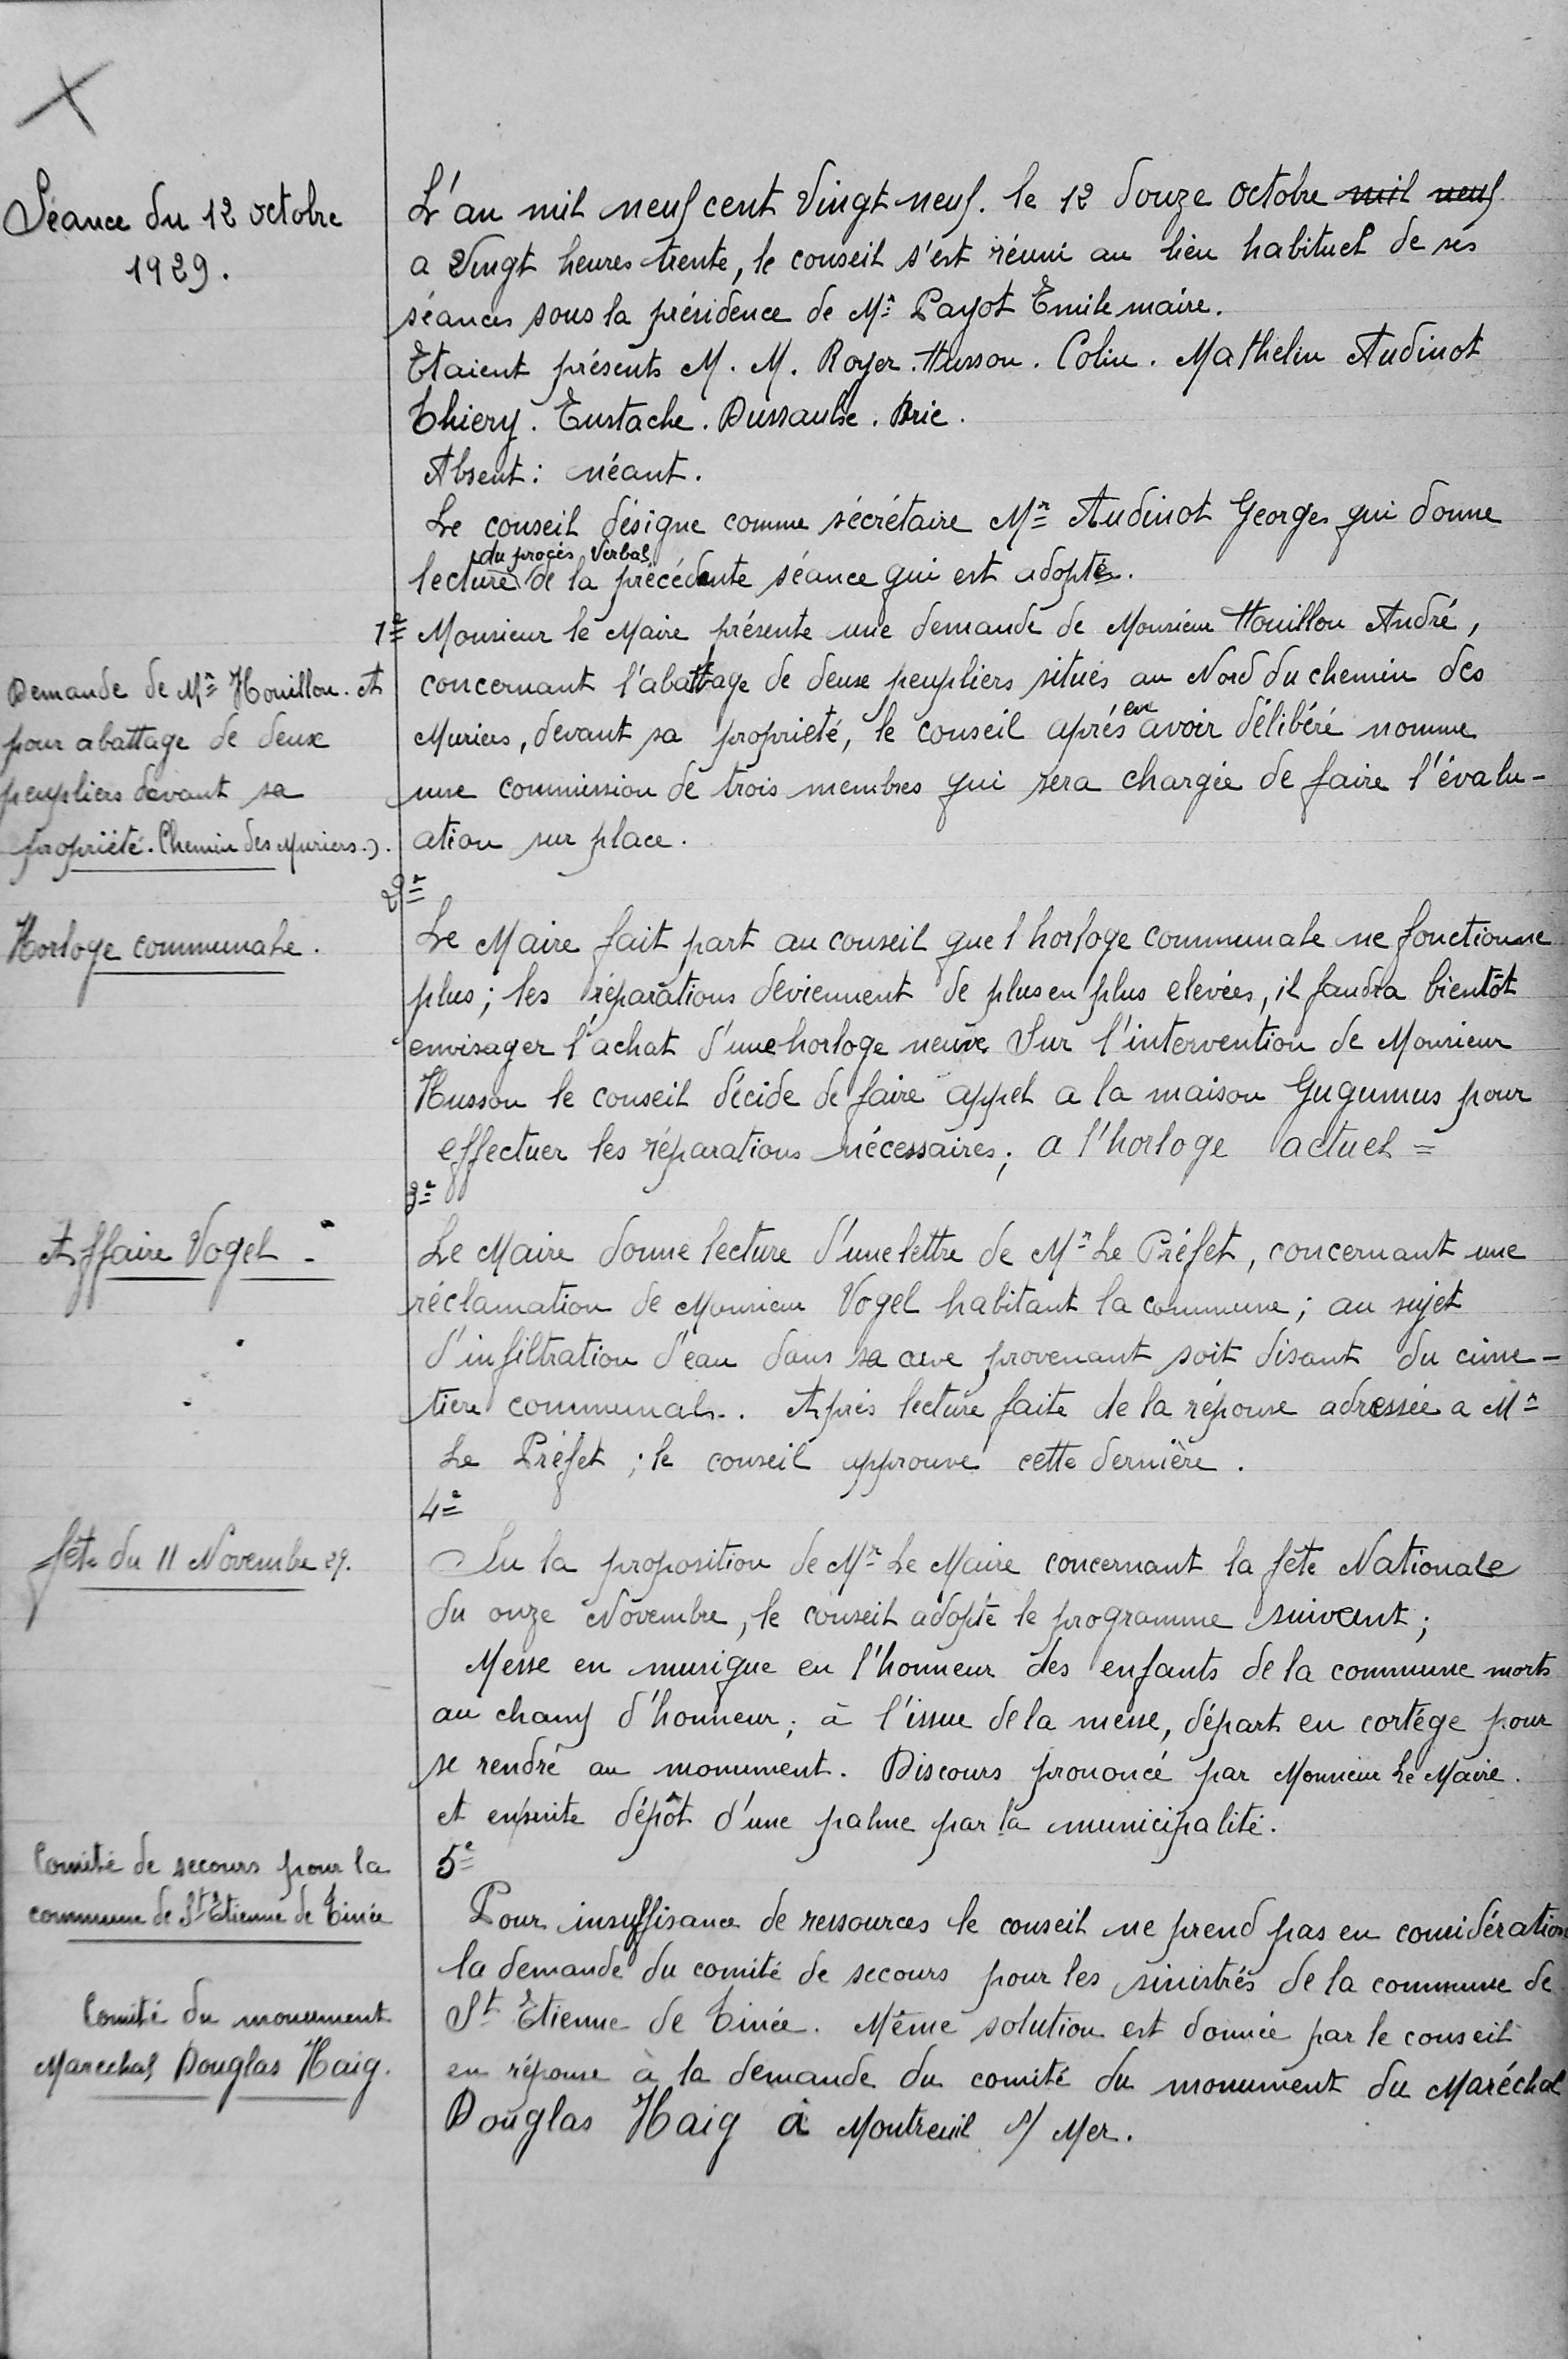 Séance du 12 octobre
1929.
L'an mil neuf cent Vingt neuf. le 12 douze octobre mil neuf
a Vingt heures trente, le conseil s'est réuni au lieu habituel de ses
séances sous la présidence de Mr Payot Emile maire.
Etaient présents M. M. Royer. Husson. Colin. Mathelin Audinot
Thiery. Eustache. Dussaulx. Brie.
Absent: néant.
Le conseil désigne comme sécrétaire Mr Audinot Georges qui donne
du procès Verbal
lecture de la précédente séance qui est adopté.
Demande de Mr Houillon. A
pour abattage de deux
peupliers devant sa
propriété. Chemin des Muriers.)
1e Monsieur le Maire présente une demande de Monsieur Houillon André,
concernant l'abattage de deux peupliers situés au Nord du chemin des
Muriers, devant sa propriété, le conseil après en avoir délibéré nomme
une commission de trois membres qui sera chargée de faire l'évalu-
ation sur place.
2e
Horloge communale.
Le Maire fait part au conseil que l horloge communale ne fonctionne
plus; les réparations deviennent de plus en plus elevées, il faudra bientôt
envisager l'achat d'une horloge neuve. Sur l'intervention de Monsieur
Husson le conseil décide de faire appel a la maison Gugumus pour
effectuer les réparations nécessaires; a l'horloge actuel =
3e
Affaire Vogel -
Le Maire donne lecture d'une lettre de Mr Le Préfet, concernant une
réclamation de Monsieur Vogel habitant la commune; au sujet
d'infiltration d'eau dans sa cave provenant soit disant du cime-
tière communal.. Après lecture faite de la réponse adressée a Mr
Le Préfet; le conseil approuve cette dernière.
4e
fête du 11 Novembre 29.
Su la proposition de Mr Le Maire concernant la fête Nationale
du onze Novembre, le conseil adopte le programme suivant;
Messe en musique en l'honneur des enfants de la commune morts
au champ d'honneur; à l'issue de la messe, départ en cortège pour
se rendre au monument. Discours prononcé par Monsieur Le Maire.
et ensuite dépôt d'une palme par la municipalité.
5e
Comité de secours pour la
commune de St Etienne de Tinée
Pour insuffisance de ressources le conseil ne prend pas en considération
la demande du comité de secours pour les sinistrés de la commune de
St Etienne de Tinée. Même solution est donnée par le conseil
en réponse à la demande du comité du monument du Maréchal
Douglas Haig à Montreuil s/ Mer.
Comité du monument
Marechal Douglas Haig.